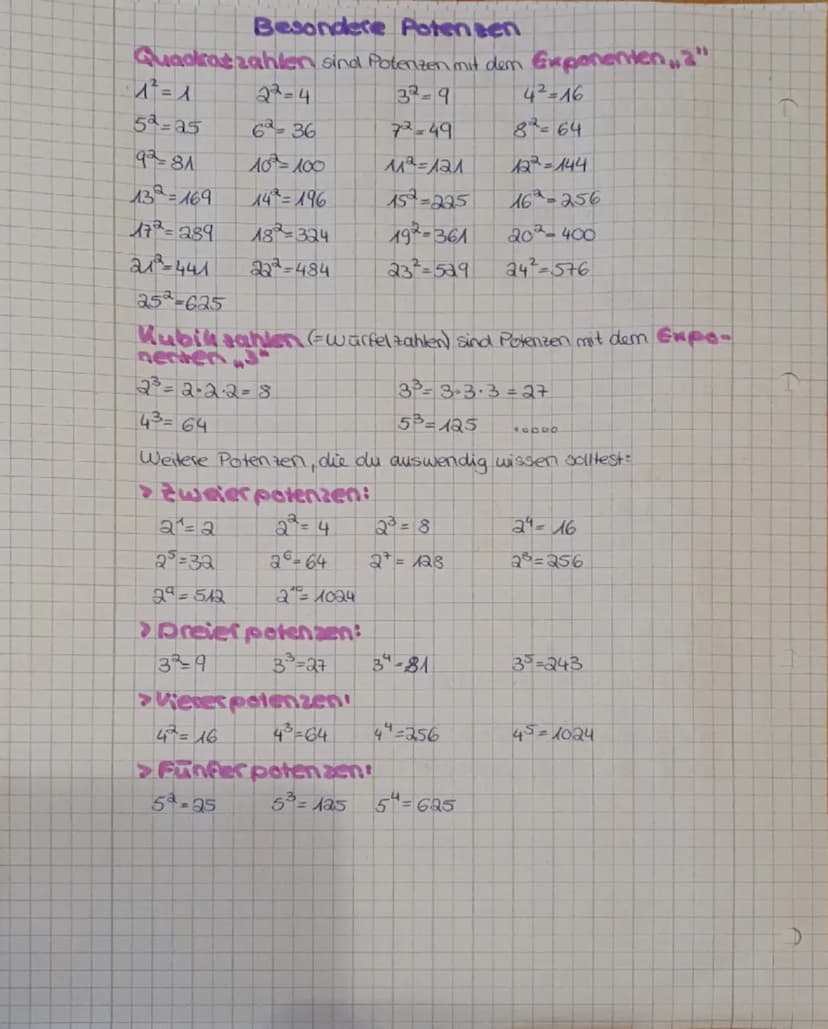 Besondere Potenzen
Quadratzahlen sind Potenzen mit dem Exponenten „2"
1² = 1 2² = 4 3² = 9 4² = 16
5² = 25 6² = 36 7² = 49 8² = 64
9² = 81 10² = 100 11² = 121 12² = 144
13² = 169 14² = 196 15² = 225 16² = 256
17² = 289 18² = 324 19² = 361 20² = 400
21² = 441 22² = 484 23² = 529 24² = 576
25² = 625
Kubikzahlen (=Würfelzahlen) sind Potenzen mit dem Expo-
nenten „3"
2³ = 2·2·2 = 8 3³ = 3·3·3 = 27
4³ = 64 5³ = 125 .....
Weitere Potenzen, die du auswendig wissen solltest:
> Zweierpotenzen:
2¹ = 2 2² = 4 2³ = 8 2⁴ = 16
2⁵ = 32 2⁶ = 64 2⁷ = 128 2⁸ = 256
2⁹ = 512 2¹⁰ = 1024
> Dreierpotenzen:
3² = 9 3³ = 27 3⁴ = 81 3⁵ = 243
> Viererpotenzen:
4² = 16 4³ = 64 4⁴ = 256 4⁵ = 1024
> Fünferpotenzen:
5² = 25 5³ = 125 5⁴ = 625